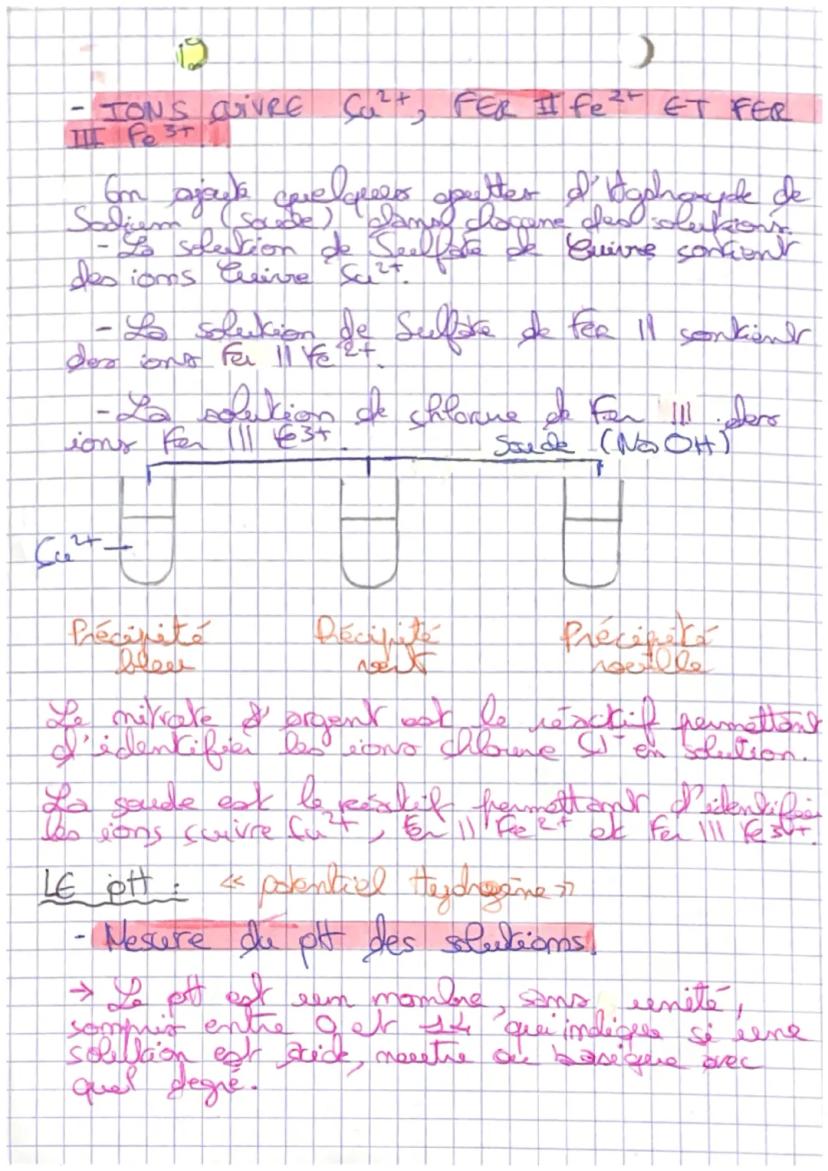 - IONS CUIVRE Cu²⁺, FER II Fe²⁺ ET FER
III Fe³⁺.
On ajoute quelques gouttes d'Hydroxyde de
Sodium (soude) dans chacune des solutions.
- La solution de Sulfate de Cuivre contient
des ions Cuivre Cu²⁺.
- La solution de Sulfate de Fer II contient
des ions Fer II Fe²⁺.
- La solution de chlorure de Fer III des
ions Fer III Fe³⁺.
Soude (NaOH)
Cu²⁺
Précipité bleu
Précipité vert
Précipité rouille
Le nitrate d'argent est le réactif permettant
d'identifier les ions chlorure Cl⁻ en solution.
La soude est le réactif permettant d'identifier
les ions cuivre Cu²⁺, Fer II Fe²⁺ et Fer III Fe³⁺.
LE pH : « potentiel Hydrogène »
- Mesure du pH des solutions.
→ Le pH est un nombre, sans unité,
compris entre 0 et 14 qui indique si une
solution est acide, neutre ou basique avec
quel degré.